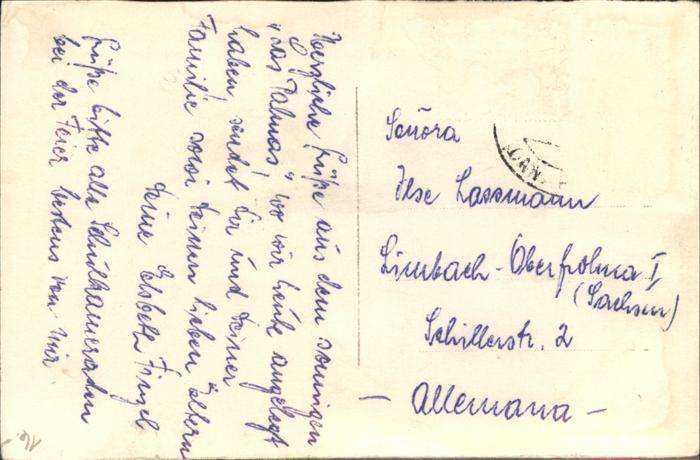 Herzliche Grüße aus dem sonnigen
"Las Palmas", wo wir heute angelegt
haben sendet Dir und Deiner
Familie sowie Deinen lieben Eltern
Deine Elsbeth Finzel
Grüße bitte alle Schulkameraden
bei der Feier bestens von mir.
Señora
Ilse Lassmann
Limbach-Oberfrohna I
(Sachsen)
Schillerstr. 2
- Allemana -